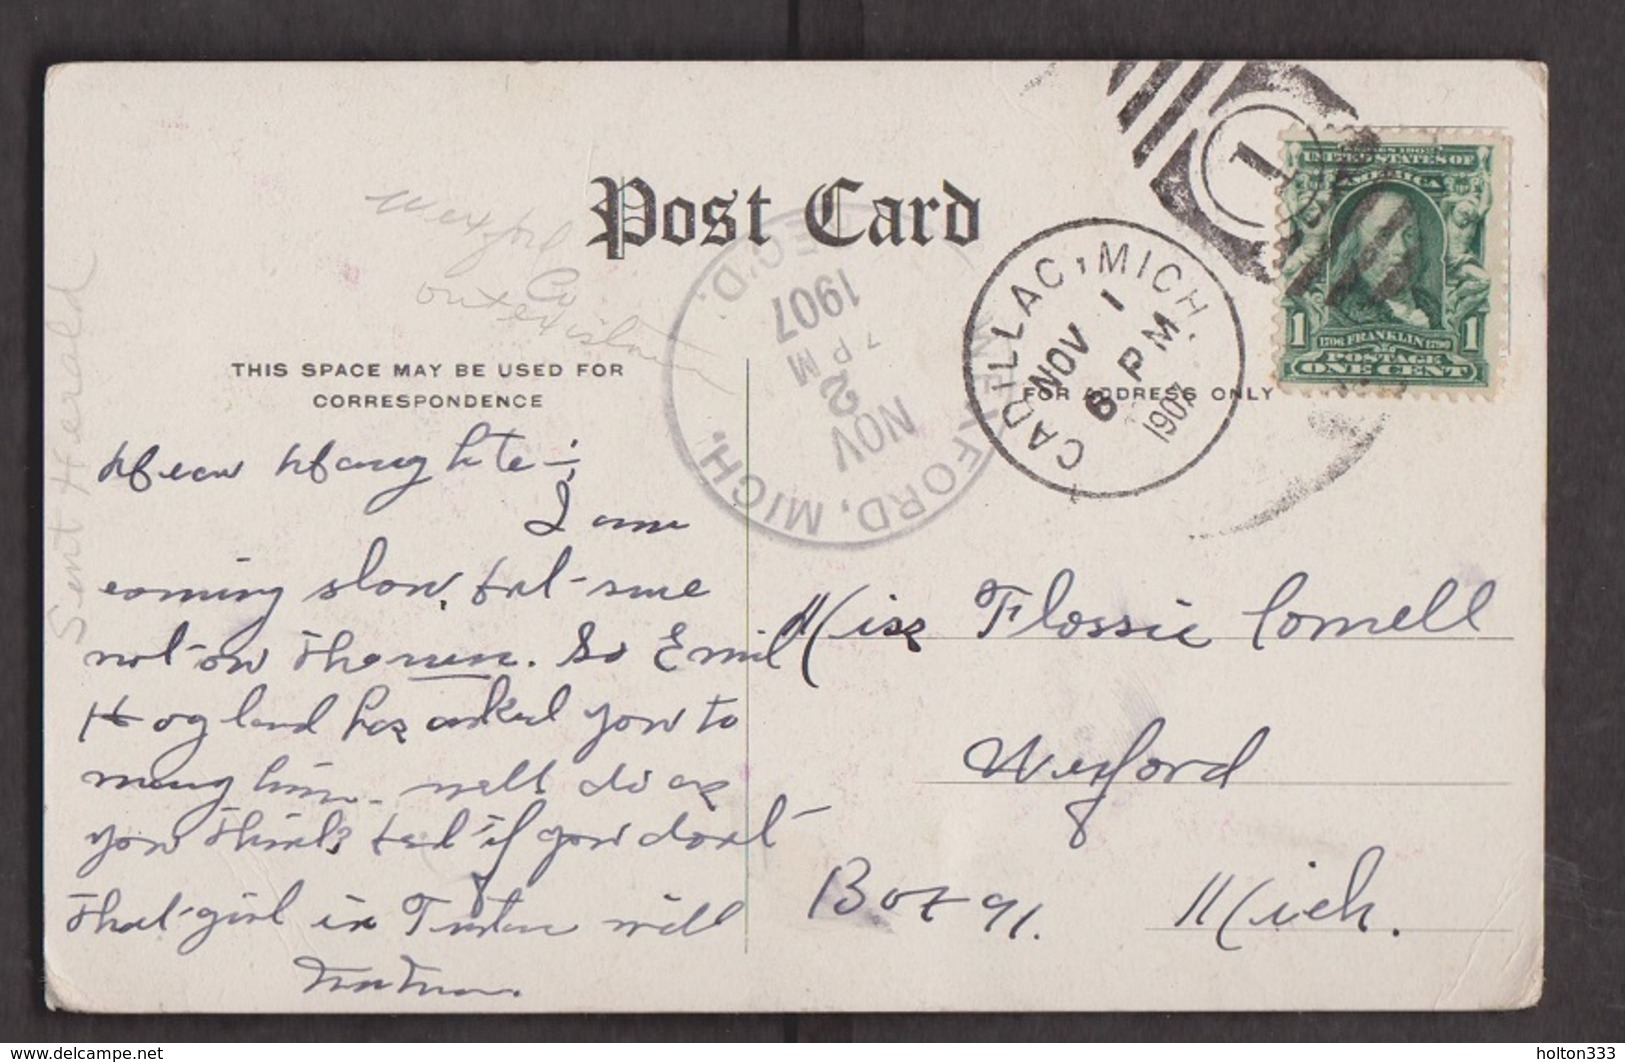 Post Card
THIS SPACE MAY BE USED FOR
CORRESPONDENCE
FOR ADDRESS ONLY
SERIES 1902
UNITED STATES OF
AMERICA
1706 FRANKLIN 1790
POSTAGE
1 ONE CENT 1
1
CADILLAC, MICH.
NOV 1
6 PM
1907
WEXFORD, MICH.
NOV
2
7 PM
1907
REC'D.
Wexford
Co
Sent Herald
I am
coming slow, but sure
not on the run. So Emil
Hogland has asked you to
him. well do as
you think but if you dont
that girl in will
Miss Flossie Cornell
Wexford
Box 91. Mich.
www.delcampe.net
holton333